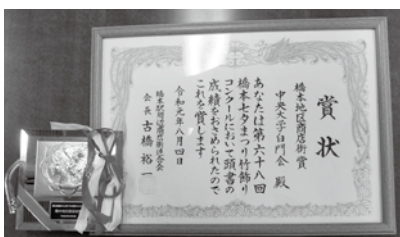 賞状
橋本地区商店街賞
中央大学白門会 殿
あなたは第六十八回
橋本七夕まつり竹飾り
コンクールにおいて頭書の
成績をおさめられたので
これを賞します
令和元年八月四日
橋本駅周辺商店街連合会
会長 古橋裕一